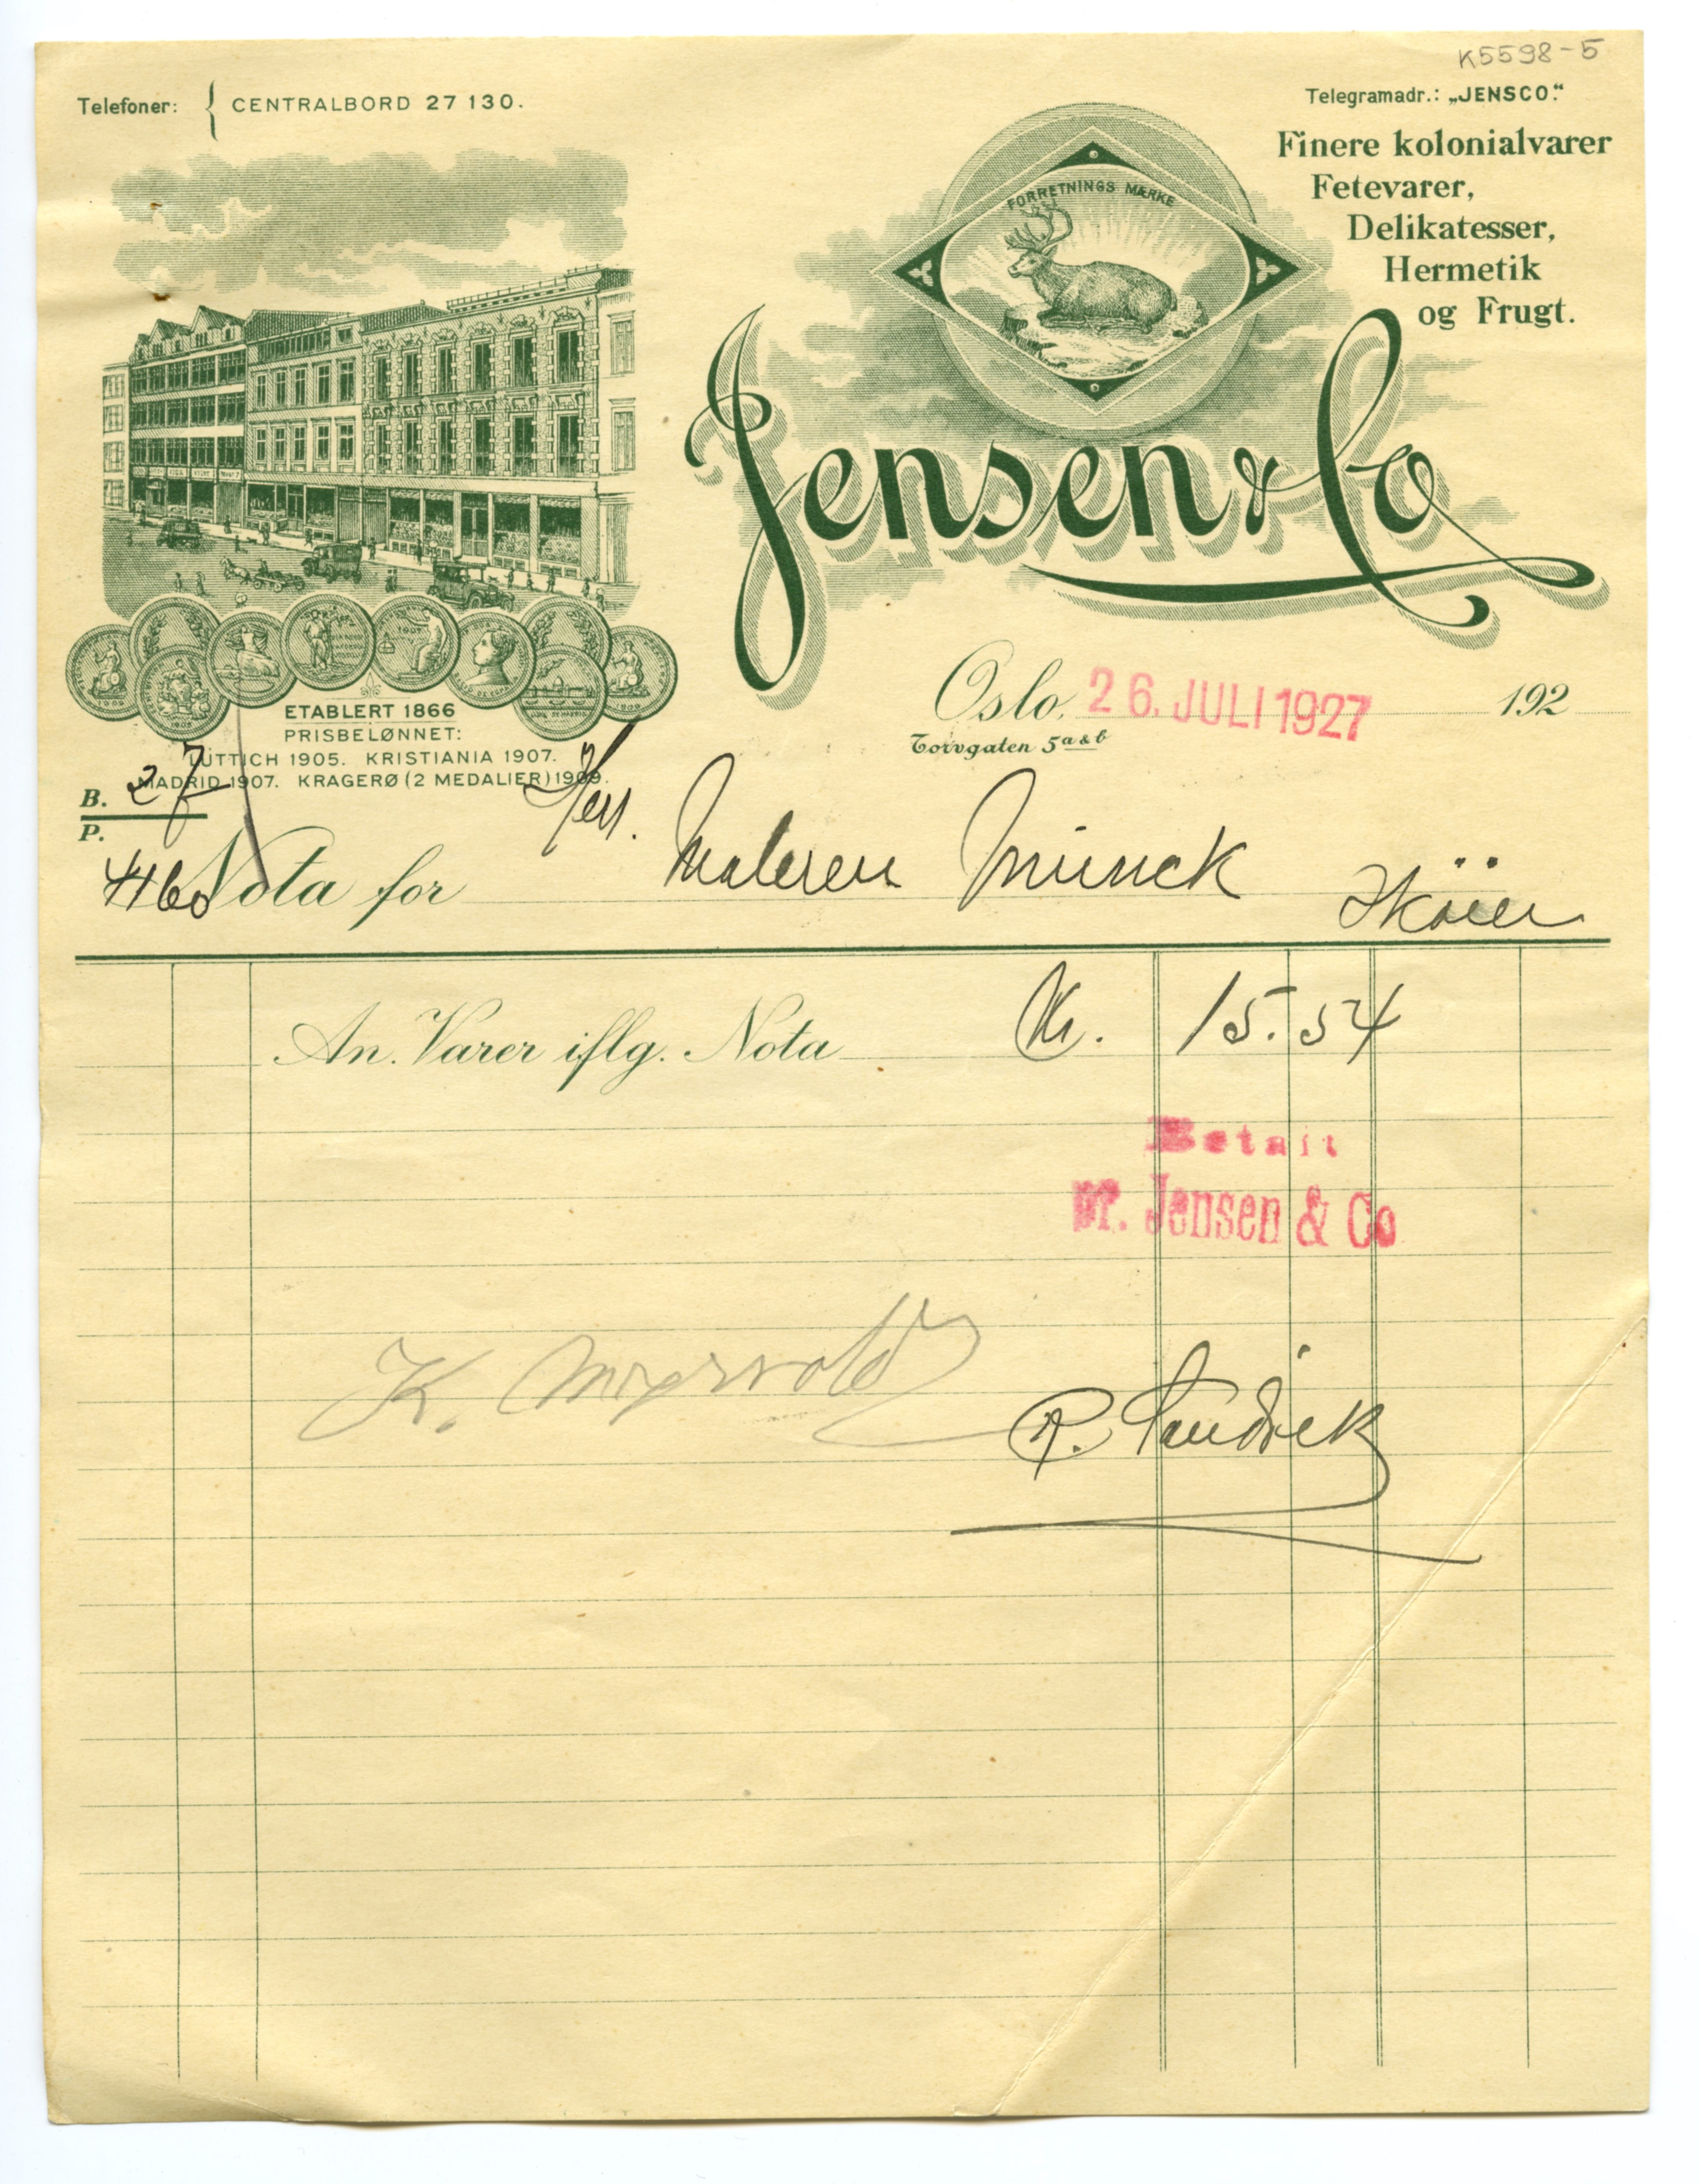 K5598-5
Telefoner: { CENTRALBORD 27 130.
Telegramadr.: „JENSCO“.
Finere kolonialvarer
Fetevarer,
Delikatesser,
Hermetik
og Frugt.
FORRETNINGS MÆRKE
Jensen & Co
ETABLERT 1866
PRISBELØNNET:
LÜTTICH 1905. KRISTIANIA 1907.
MADRID 1907. KRAGERØ (2 MEDALIER) 1909.
Oslo, 26. JULI 1927 192
Torvgaten 5 a & b
B. 27
P.
4160
Nota for Herr. Maleren Munck Sköien
An. Varer iflg. Nota Kr. 15.54
Betalt
pr. Jensen & Co
K. Myrvold